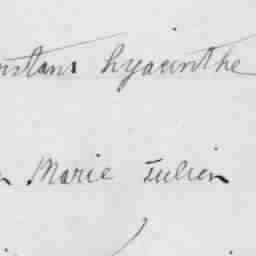 hyacinthe
Marie Julien